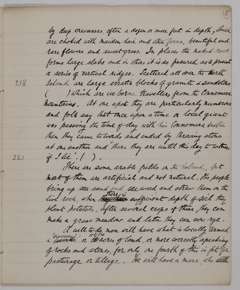 by deep crevasses often a dozen or more feet in depth, these
are choked with maiden hair and other ferns, beautiful and
rare flowers and sweet grass. In places the naked rock
forms large slabs and in others it is so fissured as to present
a series of vertical ridges. Scattered all over the North
218
Island are large erratic blocks of granite & sandstone
( ) which are ice borne travellers from the Connemara
mountains. At one spot they are particularly numerous
and folk say that once upon a time a local giant
was passing the time of day with his Connemara
then they came to words and ended by throwing stones
at one another and there they are until this day to witness
221
if I lie. ( ).
There are some arable fields on the island, but
most of them are artificial and not natural. the people
bring up sea sand and sea weed and strew them on the
bed rock, when there is sufficient depth of soil they
plant potatoes, after several crops of these, they can
make a grass meadow and later they can sow rye.
A well to do man will have what is locally termed
of land, or more correctly speaking
of rocks and stones, for only one fourth of this is fit for
pasturage or tillage. He will have a mare, who